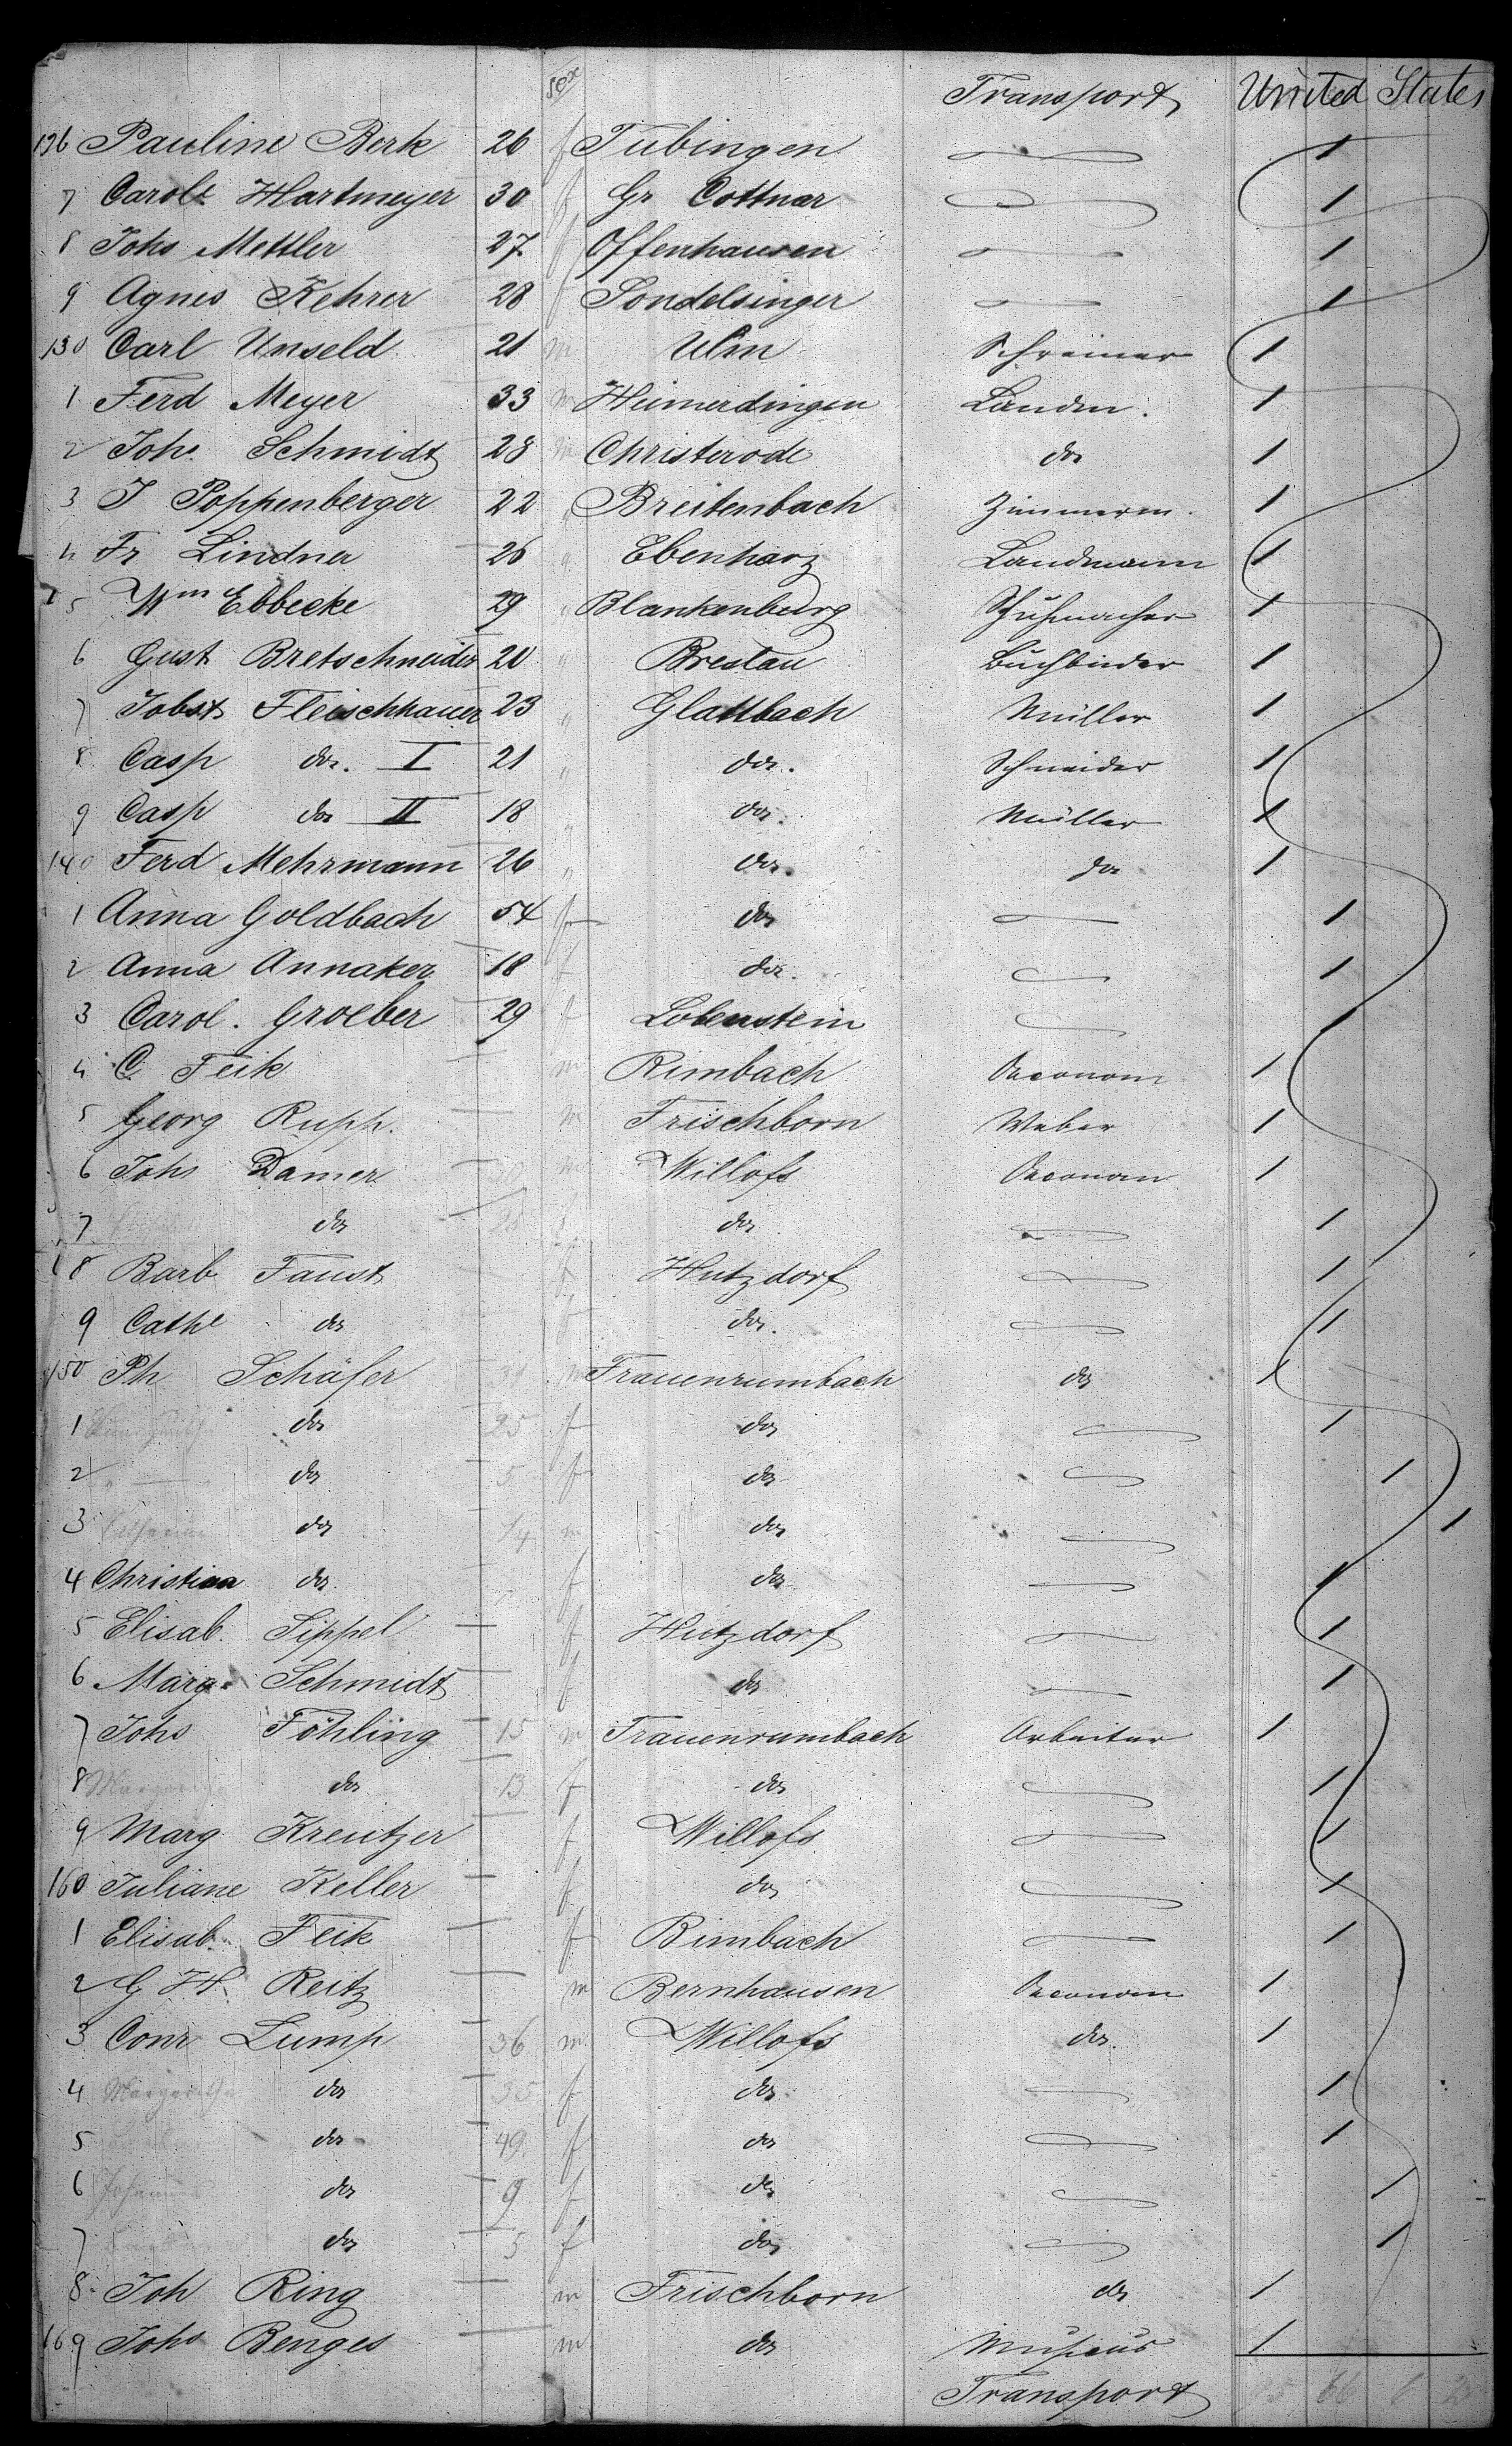 Sex Transport United States
126 Pauline Berk 26 f Tübingen 1
7 Carole Hartmeyer 30 f Gr Cottnar 1
8 Johs Mettler 27 f Offenhausen 1
9 Agnes Kehrer 28 f Sondelsinger 1
130 Carl Unseld 21 m Ulm Schreiner 1
1 Ferd Meyer 33 m Heimerdingen Landm. 1
2 Johs Schmidt 28 m Christerode do 1
3 J Poppenberger 22 " Breitenbach Zimmerm. 1
4 Fr Lindner 26 " Ebenharz Landmann 1
5 Wm Ebbecke 29 " Blankenburg Schuhmacher 1
6 Gust Bretschneider 20 " Breslau Buchbinder 1
7 Jobst Fleischhauer 23 " Glattbach Müller 1
8 Casp do. I 21 " do. Schneider 1
9 Casp do II 18 " do. Müller 1
140 Ferd Mehrmann 26 " do. do 1
1 Anna Goldbach 54 f do 1
2 Anna Annaker 18 f do. 1
3 Carol. Groeber 29 f Lobenstein 1
4 C Feik m Rimbach Oeconom 1
5 Georg Rupp. m Frischborn Weber 1
6 Johs Damer m Willofs Oeconom 1
7 do do 1
8 Barb Faust f Hutzdorf 1
9 Cathe do f do. 1
150 Ph Schäfer m Frauenrumbach do 1
1 do 25 f do 1
2 do 5 f do 1
3 do m do 1
4 Christina do. f do 1
5 Elisab. Sippel f Hutzdorf 1
6 Marg. Schmidt f do 1
7 Johs Föhling 15 m Frauenrumbach Arbeiter 1
8 Margaretha do 13 f do 1
9 Marg Kreutzer f Willofs 1
160 Juliane Keller f do 1
1 Elisab. Feik f Rimbach 1
2 G H. Reitz m Bernhausen Oeconom 1
3 Conr Lump 36 m Willofs do. 1
4 Margaretha do 35 f do 1
5 do 49 f do 1
6 Johannes do 9 f do 1
7 do 5 f do 1
8 Joh Ring m Frischborn do 1
169 Johs Benges m do Musicus 1
Transport 66